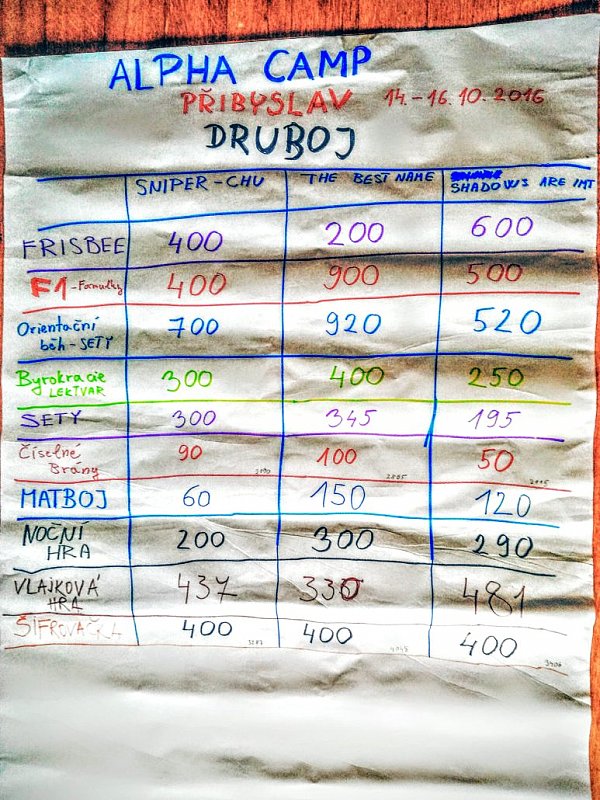 ALPHA CAMP
PŘIBYSLAV 14.-16.10.2016
DRUBOJ
SNIPER-CHU THE BEST NAME SHADOWS ARE IMT
FRISBEE 400 200 600
F1-Formulky 400 900 500
Orientační běh-SETY 700 920 520
Byrokracie LEKTVAR 300 400 250
SETY 300 345 195
Číselné Brány 90 100 50
MATBOJ 60 150 120
NOČNÍ HRA 200 300 290
VLAJKOVÁ HRA 437 330 481
ŠIFROVAČKA 400 400 400